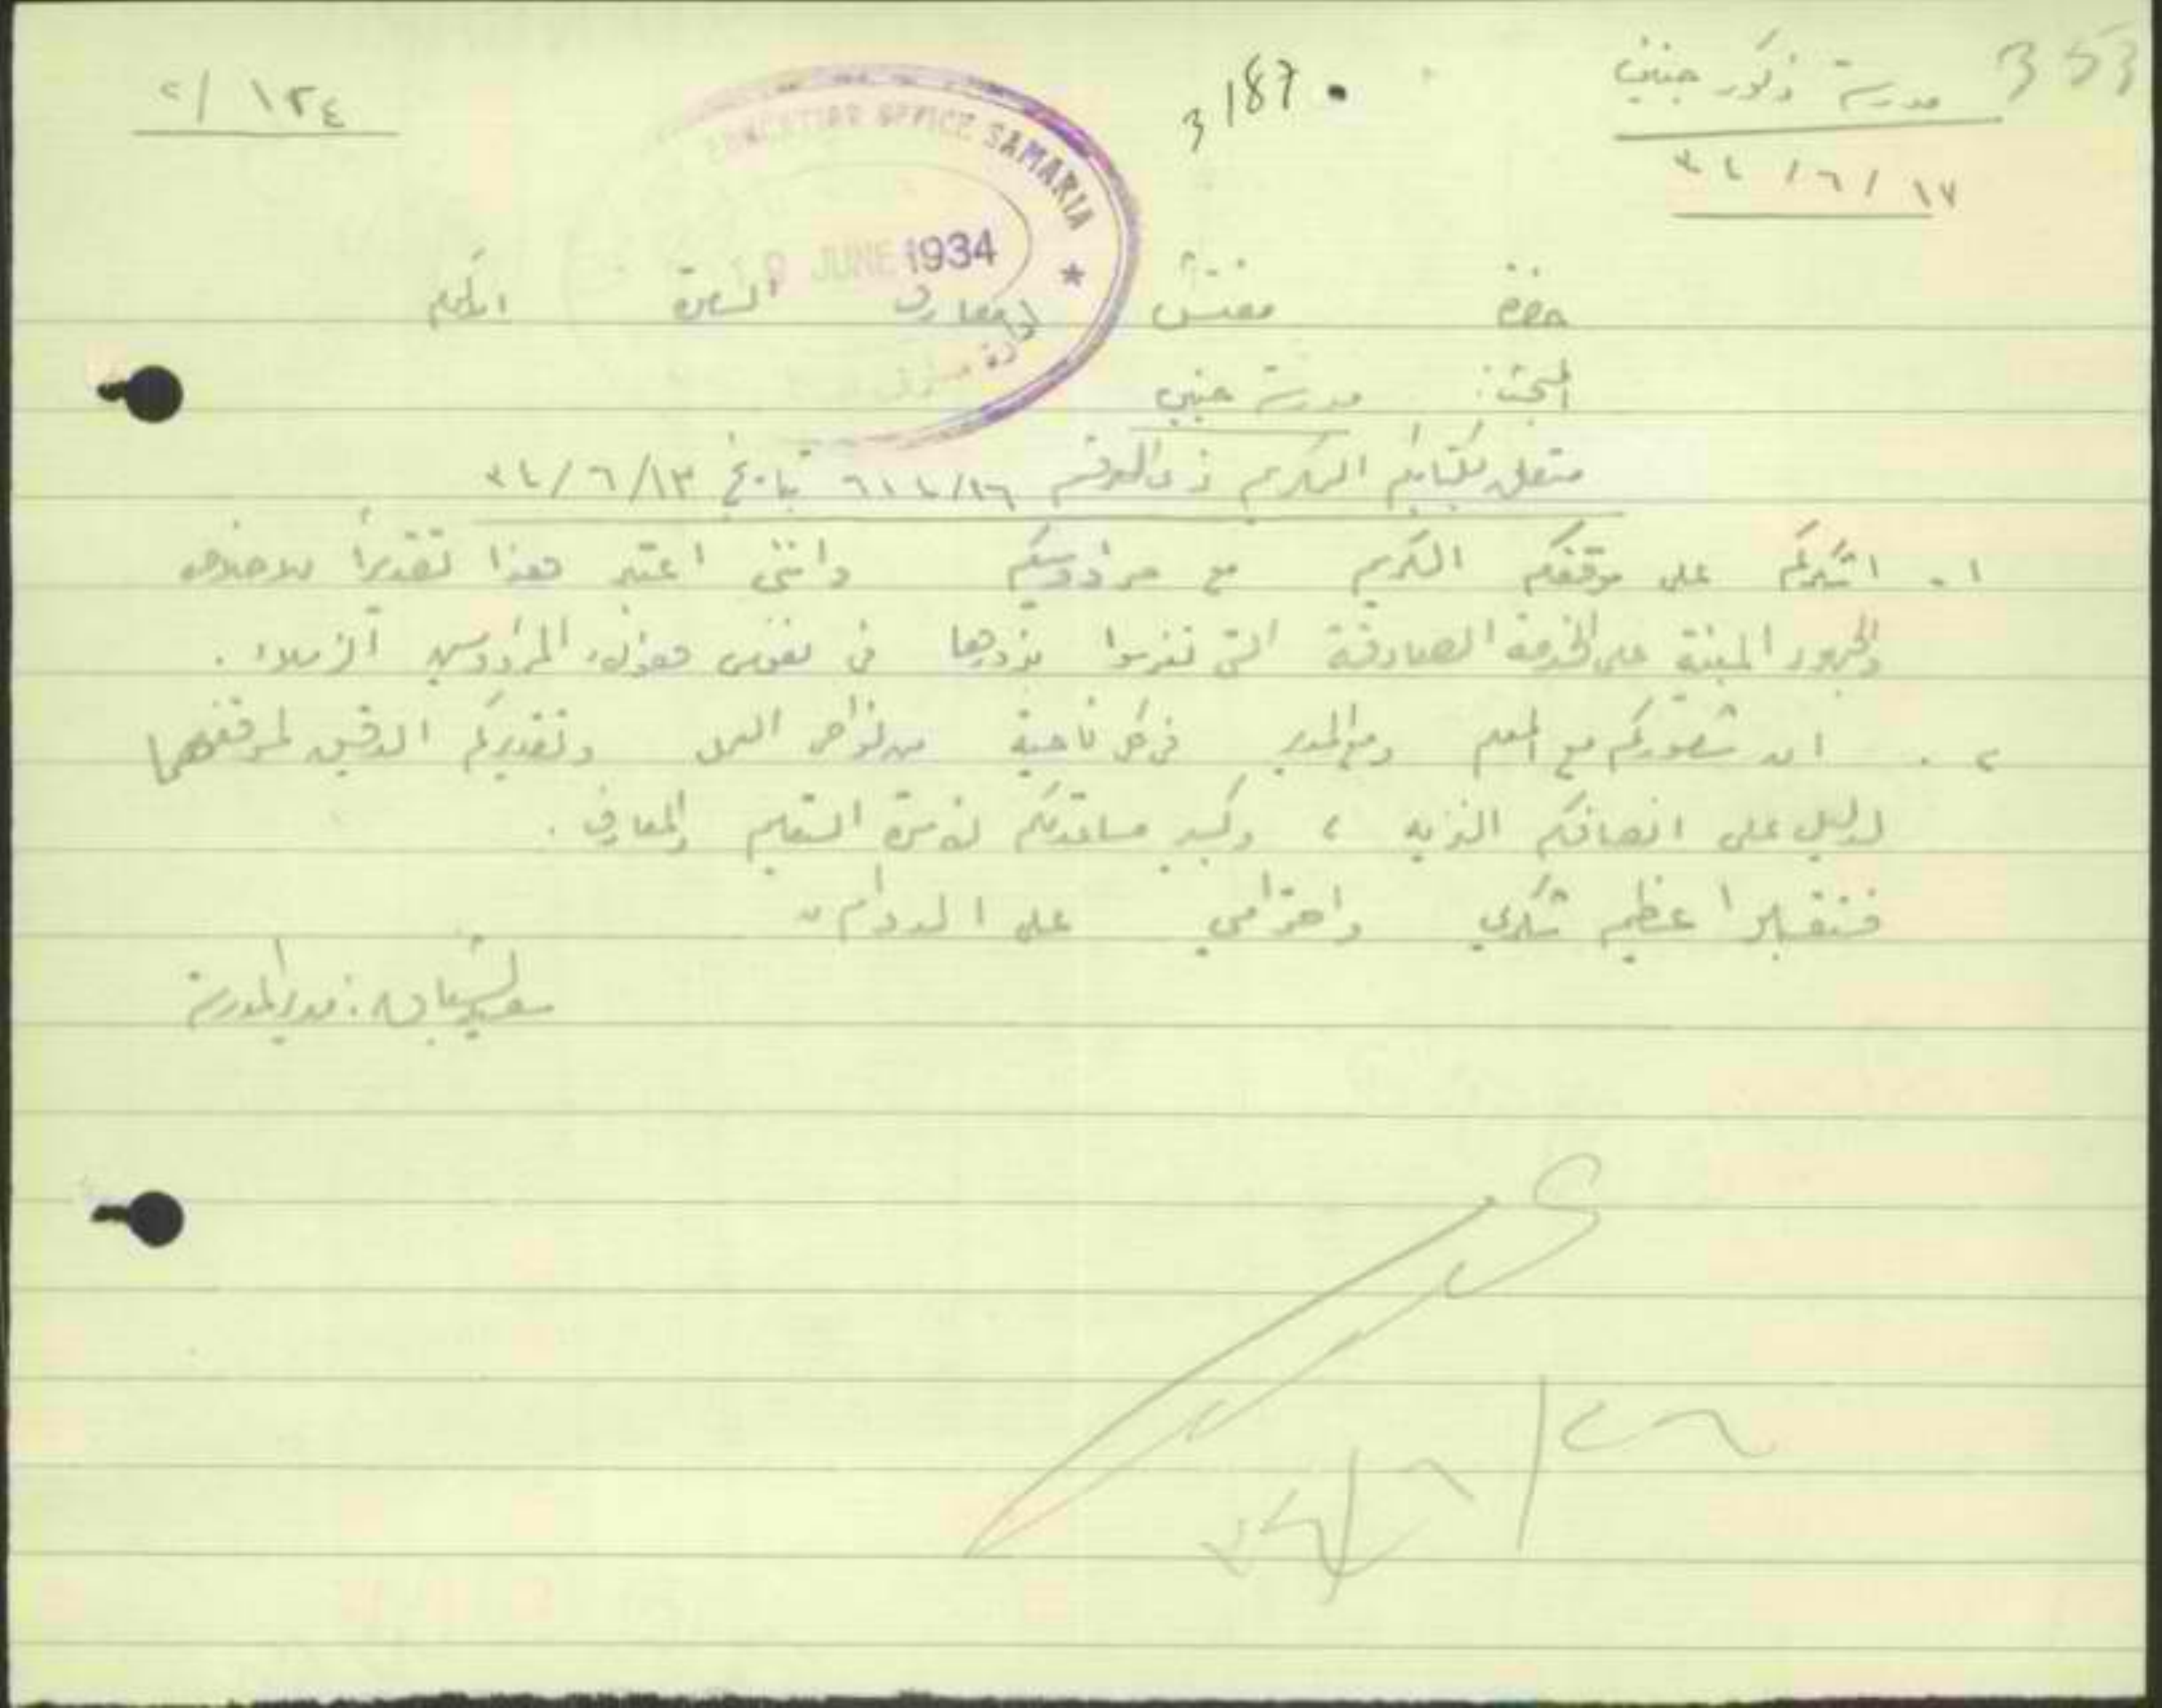 353
مدرسة ذكور جنين
١٧ / ٦ / ٣٤
3187.
١٢٤ / ٢
EDUCATION OFFICE SAMARIA
19 JUNE 1934
ادارة معارف
حضرة مفتش معارف السامرة الاكرم
المبحث: مدرسة جنين
متعلق بكتابكم الكريم ذي الرقم ٦١٤/١٦ تاريخ ٣٤/٦/١٣
١. اشكركم على موقفكم الكريم مع مرؤوسيكم وانني اعتبر هذا تقديراً للاخلاص
والجهود المبنية على الخدمة الصادقة التي تغرسوا بذورها في نفوس هؤلاء المرؤوسين الزملاء.
٢. ان شعوركم مع المعلم ومع المدير في كل ناحية من نواحي العمل وتقديركم الدقيق لموقفهما
لدليل على انصافكم النزيه ، وكبير مساعدتكم لاسرة التعليم والمعارف.
فتقبلوا عظيم شكري واحترامي على الدوام
مدير المدرسة
٢٦/٦/٣٤